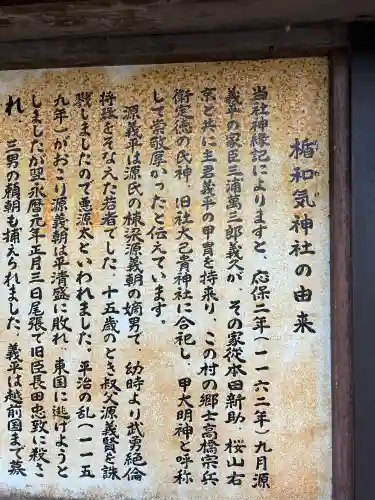 楯和気神社の由来
当社神縁記によりますと、応保二年(一一六二年)九月源
義平の家臣三浦萬三郎義久が、その家従本田新助、桜山右
京と共に主君義平の甲冑を持来り、この村の郷士高橋宗兵
衛定徳の氏神、旧社大己貴神社に合祀し、甲大明神と呼称
して崇敬厚かったと伝えています。
源義平は源氏の棟梁源義朝の嫡男で、幼時より武勇絶倫
将様をそなえた若者でした、十五歳のとき叔父源義賢を誅
戮しましたので悪源太といわれました。平治の乱(一一五
九年)がおこり源義朝は平清盛に敗れ、東国に逃げようと
しましたが翌永暦元年正月三日尾張で旧臣長田忠致に殺さ
れ、三男の頼朝も捕えられました、義平は越前国まで募